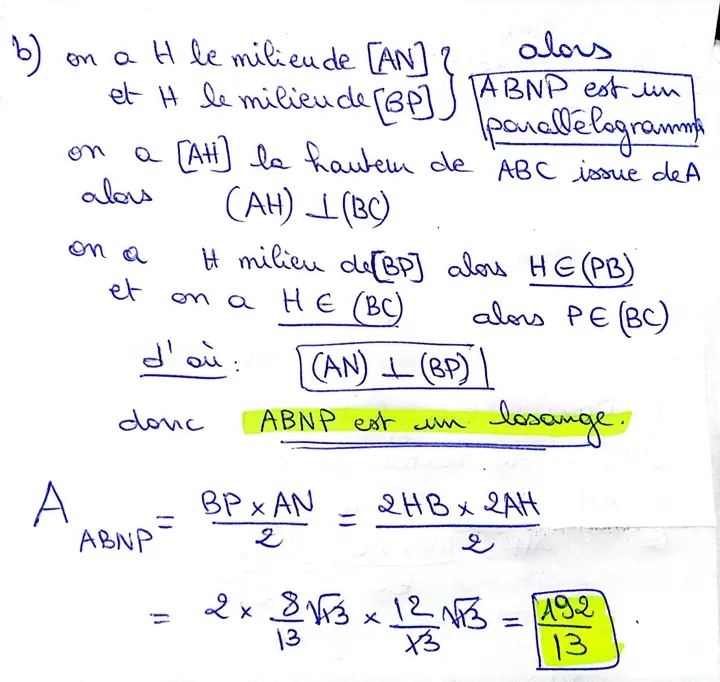 b) on a H le milieu de [AN] } alors
et H le milieu de [BP] } ABNP est un parallélogramme
on a [AH] la hauteur de ABC issue de A
alors (AH) ⊥ (BC)
on a H milieu de [BP] alors H ∈ (PB)
et on a H ∈ (BC) alors P ∈ (BC)
d'où : (AN) ⊥ (BP)
donc ABNP est un losange.
A_ABNP = (BP × AN)/2 = (2HB × 2AH)/2
= 2 × 8/13 √13 × 12/13 √13 = 192/13 .